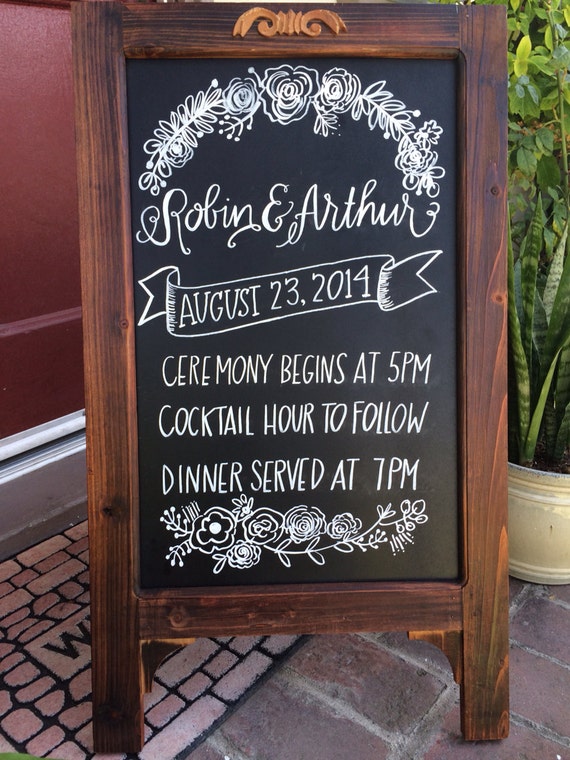 Robin & Arthur
AUGUST 23, 2014
CEREMONY BEGINS AT 5PM
COCKTAIL HOUR TO FOLLOW
DINNER SERVED AT 7PM